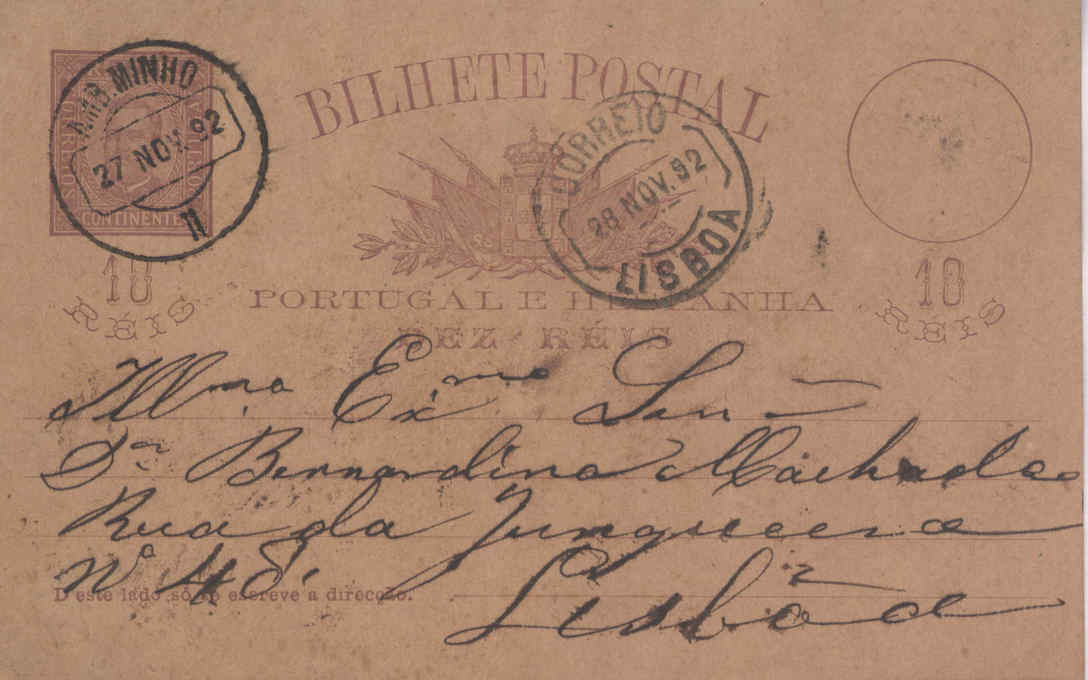 AMB. MINHO
27 NOV. 92
II
CONTINENTE
BILHETE POSTAL
CORREIO
28 NOV. 92
LISBOA
10
RÉIS
10
RÉIS
PORTUGAL E HESPANHA
DEZ RÉIS
Illmo Exmo Snr
Dr Bernardino Machado
Rua da Junqueira
Nº 48
D'este lado só se escreve a direcção.
Lisboa